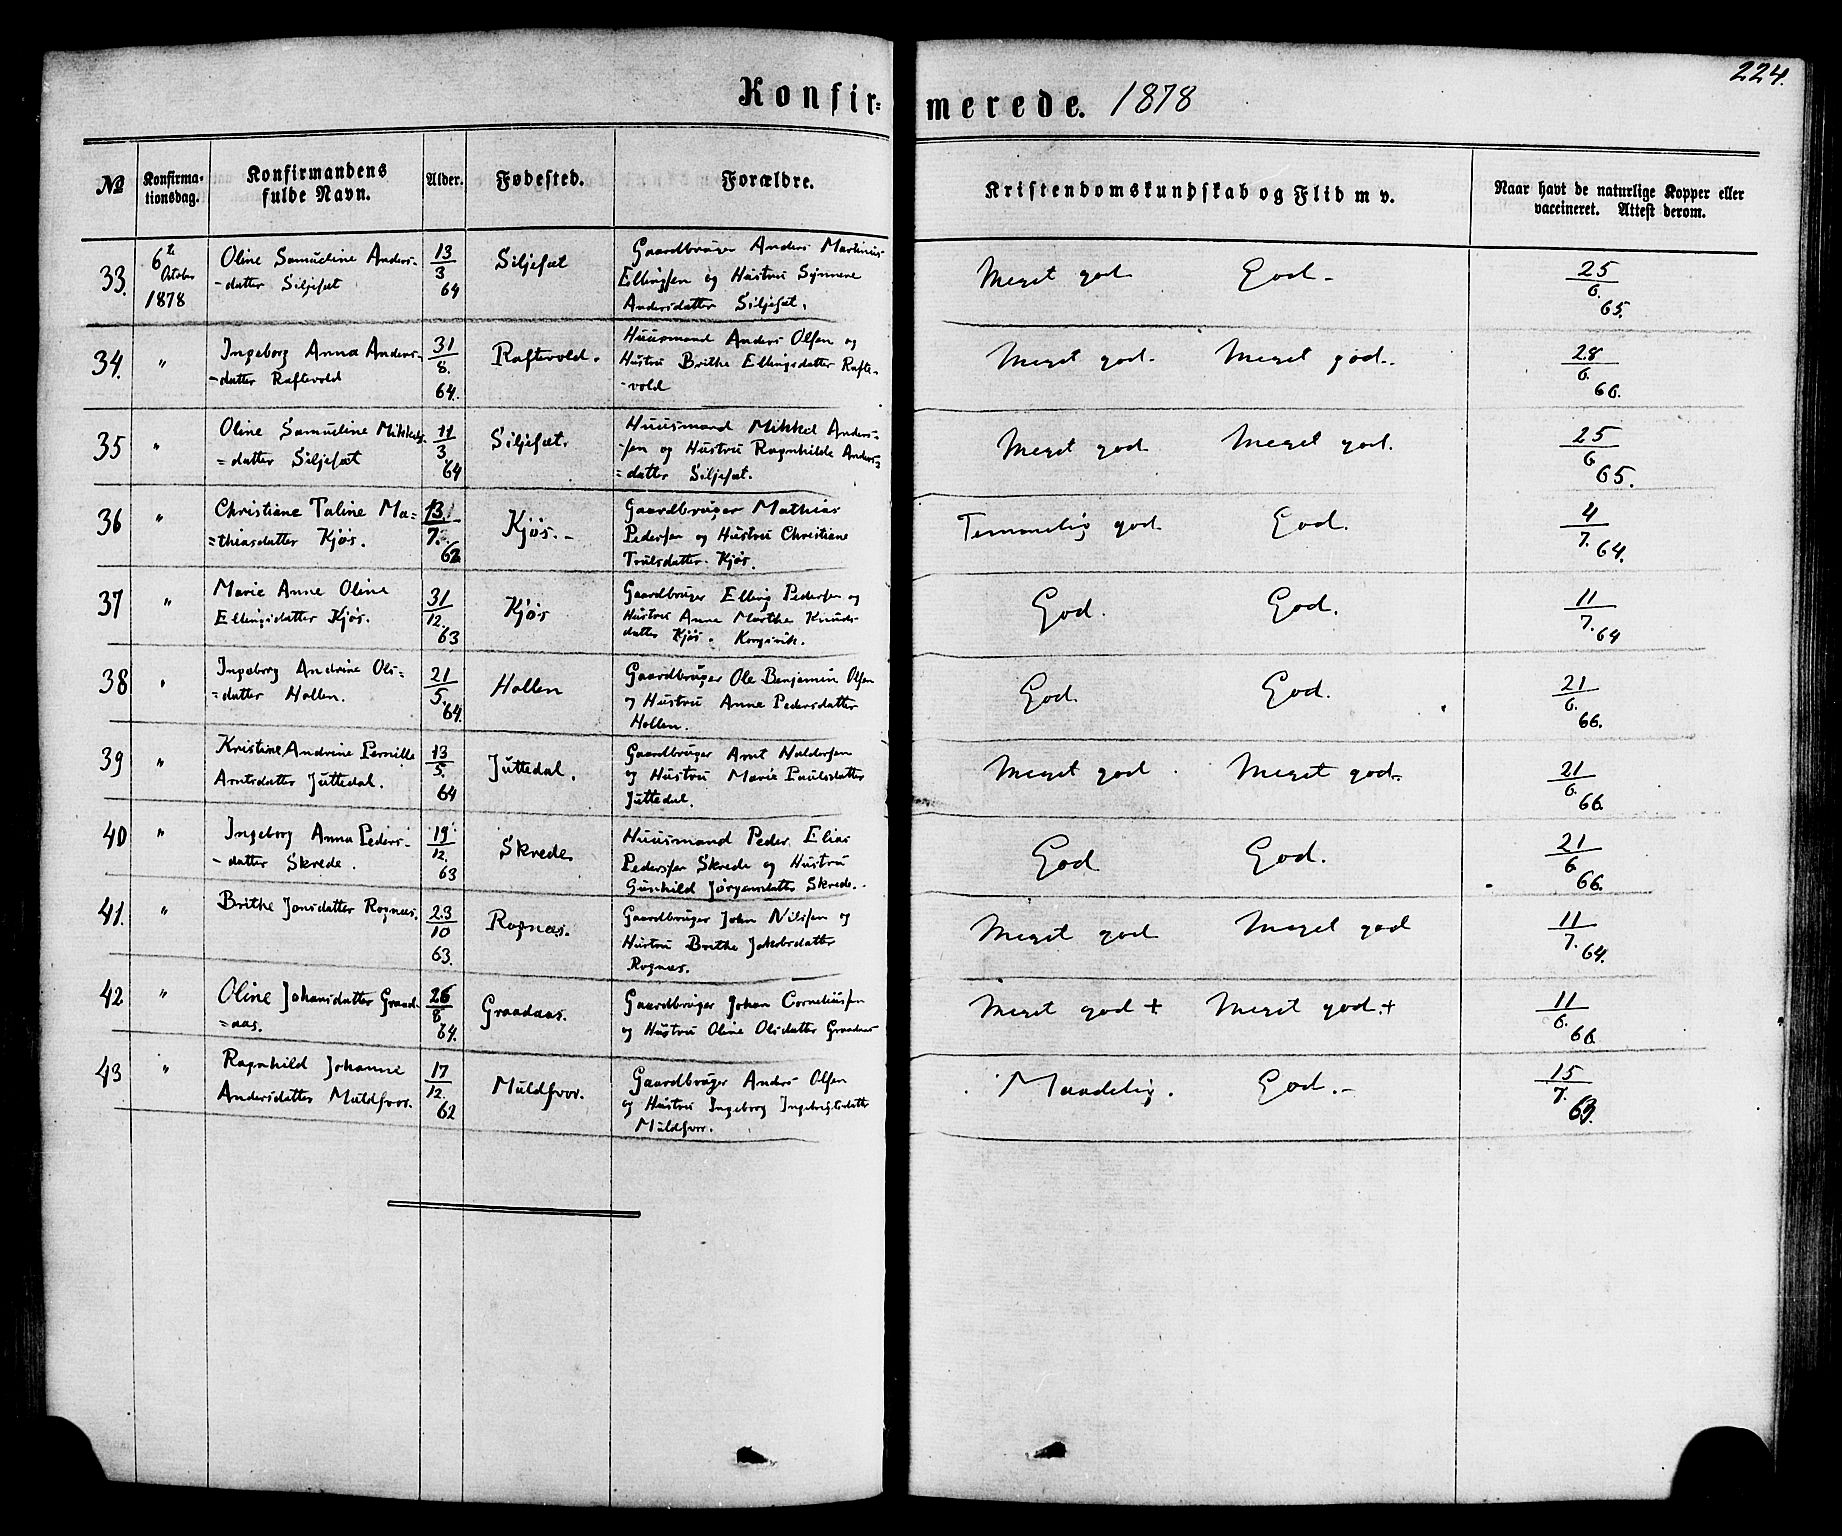 224.
Konfirmerede. 1878
№ Konfirmationsdag. Konfirmandens fulde Navn. Alder. Fødested. Forældre. Kristendomskundskab og Flid m v. Naar havt de naturlige Kopper eller vaccineret. Attest derom.
33. 6te October 1878 Oline Samueline Anders- 13/3 64 Siljesæt Gaardbruger Anders Martinus Meget god God- 25/6. 65.
-datter Siljesæt Ellingsen og Hustru Synneve
Andersdatter Siljesæt.
34. " Ingeborg Anna Anders- 31/8. 64. Raftevold. Huusmand Anders Olsen og Meget god. Meget god. 28/6. 66.
-datter Raftevold Hustru Brithe Ellingsdatter Rafte-
-vold
35 " Oline Samueline Mikkels- 11/3. 64 Siljesæt. Huusmand Mikkel Anders- Meget god Meget god. 25/6 65.
=datter Siljesæt -sen og Hustru Ragnhilde Anders=
=datter Siljesæt.
36 " Christiane Taline Ma= 13./7. 62 Kjøs.- Gaardbruger Mathias Temmelig god God. 4/7. 64.
=thiasdatter Kjøs. Pedersen og Hustru Christiane
Trulsdatter Kjøs.
37 " Marie Anne Oline 31/12. 63 Kjøs Gaardbruger Elling Pedersen og God. God. 11/7. 64
Ellingsdatter Kjøs. Hustru Anne Marthe Knuds-
datter Kjøs.
38 " Ingeborg Andrine Ols= 21/5. 64. Hollen Gaardbruger Ole Benjamin Olsen God. God. 21/6. 66.
=datter Hollen. og Hustru Anne Pedersdatter
Hollen.
39 " Kristine Andrine Pernille 13/5. 64 Juttedal. Gaardbruger Arnt Haldorsen Meget god. Meget god. 21/6. 66.
Arntsdatter Juttedal. og Hustru Marie Paulsdatter
Juttedal.
40 " Ingeborg Anna Peders- 19/12. 63 Skrede Huusmand Peder Elias God God. 21/6 66.
-datter Skrede. Pedersen Skrede og Hustru
Gunhild Jørgensdatter Skrede.
41. " Brithe Jonsdatter Rognæs. 23/10 63. Rognæs. Gaardbruger John Nilssen og Meget god Meget god 11/7. 64.
Hustru Brithe Jakobsdatter
Rognæs.
42 " Oline Johansdatter Graad- 26/8 64. Graadaas. Gaardbruger Johan Corneliussen Meget god + Meget god.+ 11/6. 66
=aas. og Hustru Oline Olsdatter Graadaas
43 " Ragnhild Johanne 17/12. 62 Muldsvor. Gaardbruger Anders Olsen Maadelig. God.- 15/7. 63.
Andersdatter Muldsvor. og Hustru Ingeborg Ingebrigtsdatter
Muldsvor.